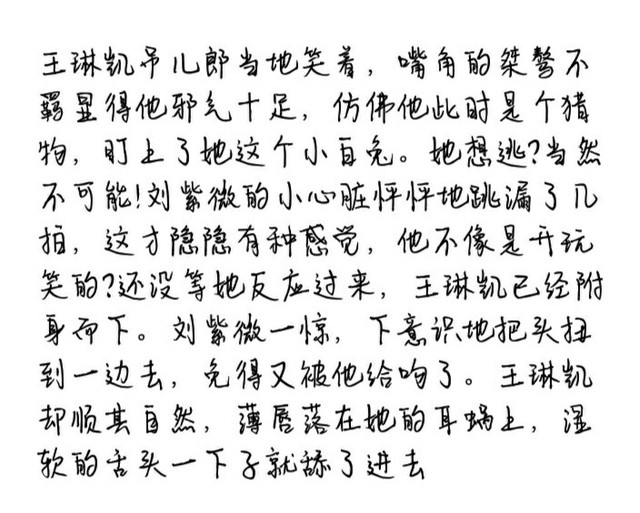 王琳凯吊儿郎当地笑着，嘴角的桀骜不
羁显得他邪气十足，仿佛他此时是个猎
物，盯上了她这个小白兔。她想逃?当然
不可能!刘紫微的小心脏怦怦地跳漏了几
拍，这才隐隐有种感觉，他不像是开玩
笑的?还没等她反应过来，王琳凯已经附
身而下。刘紫微一惊，下意识地把头扭
到一边去，免得又被他给吻了。王琳凯
却顺其自然，薄唇落在她的耳蜗上，湿
软的舌头一下子就舔了进去